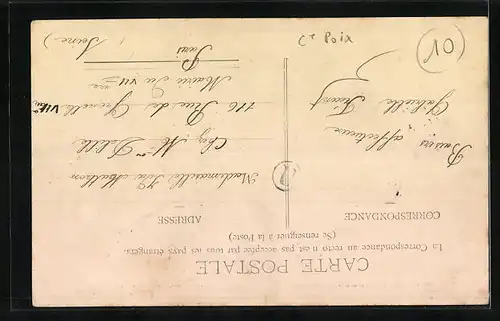 CARTE POSTALE
La Correspondance au recto n'est pas acceptée par tous les pays étrangers.
(Se renseigner à la Poste)
CORRESPONDANCE
ADRESSE
Baisers affectueux
Gabrielle
Mademoiselle
Chez Mme
116 Rue de Grenelle VIIe
Mairie du VIIme
Paris
(Seine)
Ct Poix
10